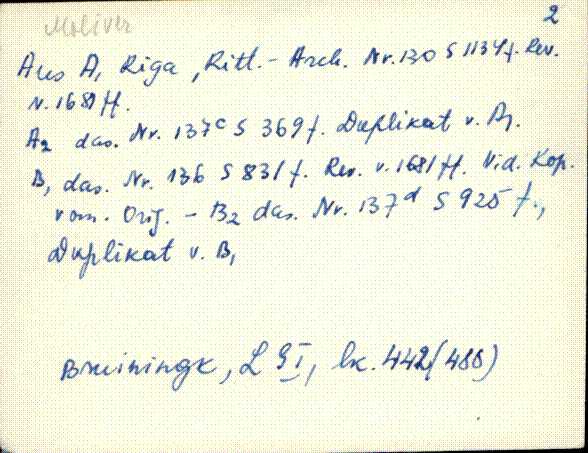 Moliver
2
Aus A, Riga, Ritt.-Arch. Nr. 130 S 1134 f. Rev.
v. 1681 ff.
A2 das. Nr. 137c S 369 f. Duplikat v. A,.
B, das. Nr. 136 S 831 f. Rev. v. 1681 ff. Vid. Kop.
vom. Orig. - B2 das. Nr. 137d S 925 f.,
Duplikat v. B,
Bruiningk, L G I, lk. 442 (488)